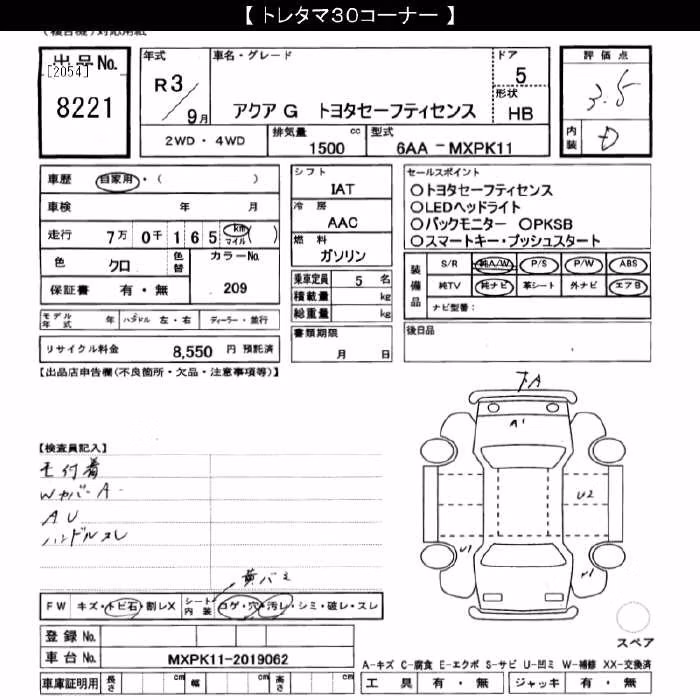 【 トレタマ３０コーナー 】
(複合機)対応用紙
出品No.
[2054]
8221
年式
R3/9月
車名・グレード
アクア G トヨタセーフティセンス
ドア
5
形状
HB
評価点
3.5
内装
D
2WD・4WD
排気量 1500 cc
型式 6AA－MXPK11
車歴 自家用・( )
車検 年 月
走行 7万 0千 1 6 5 km マイル ( )
色 クロ
色替
カラーNo. 209
保証書 有・無
モデル年式 年
ハンドル 左・右
ディーラー・並行
リサイクル料金 8,550 円 預託済
シフト
IAT
冷房
AAC
燃料
ガソリン
乗車定員 5 名
積載量 kg
総重量 kg
書類期限
月 日
セールスポイント
○トヨタセーフティセンス
○LEDヘッドライト
○バックモニター ○PKSB
○スマートキー・プッシュスタート
装備品
S/R 純A/W P/S P/W ABS
純TV 純ナビ 革シート 外ナビ エアB
ナビ型番：
後日品
【出品店申告欄(不良箇所・欠品・注意事項等)】
【検査員記入】
モ付着
WカバーA
AU
ハンドルスレ
黄バミ
下A
A1
U2
U1
FW キズ・トビ石・割レX
シート内装 コゲ・穴・汚レ・シミ・破レ・スレ
登録No.
車台No. MXPK11-2019062
車庫証明用 長さ cm 幅 cm 高さ cm
スペア
A-キズ C-腐食 E-エクボ S-サビ U-凹ミ W-補修 XX-交換済
工具 有・無 ジャッキ 有・無